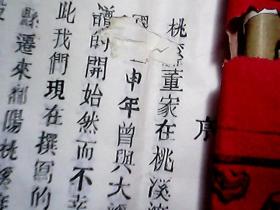 序
桃溪董家在桃溪
申年曾與大溪
譜的開始然而不幸
此我們現在撰寫的
縣遷來鄱陽桃溪